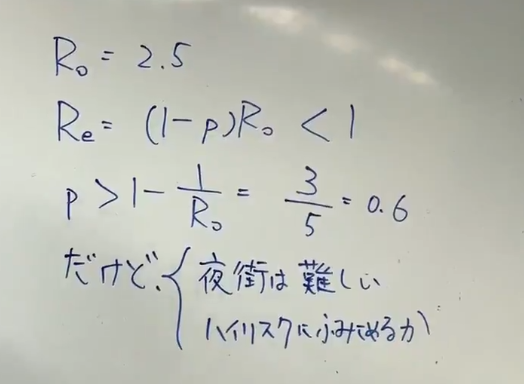 R₀ = 2.5
Re = (1-p)R₀ < 1
p > 1 - 1/R₀ = 3/5 = 0.6
だけど、{ 夜街は難しい
ハイリスクにふみこめるか